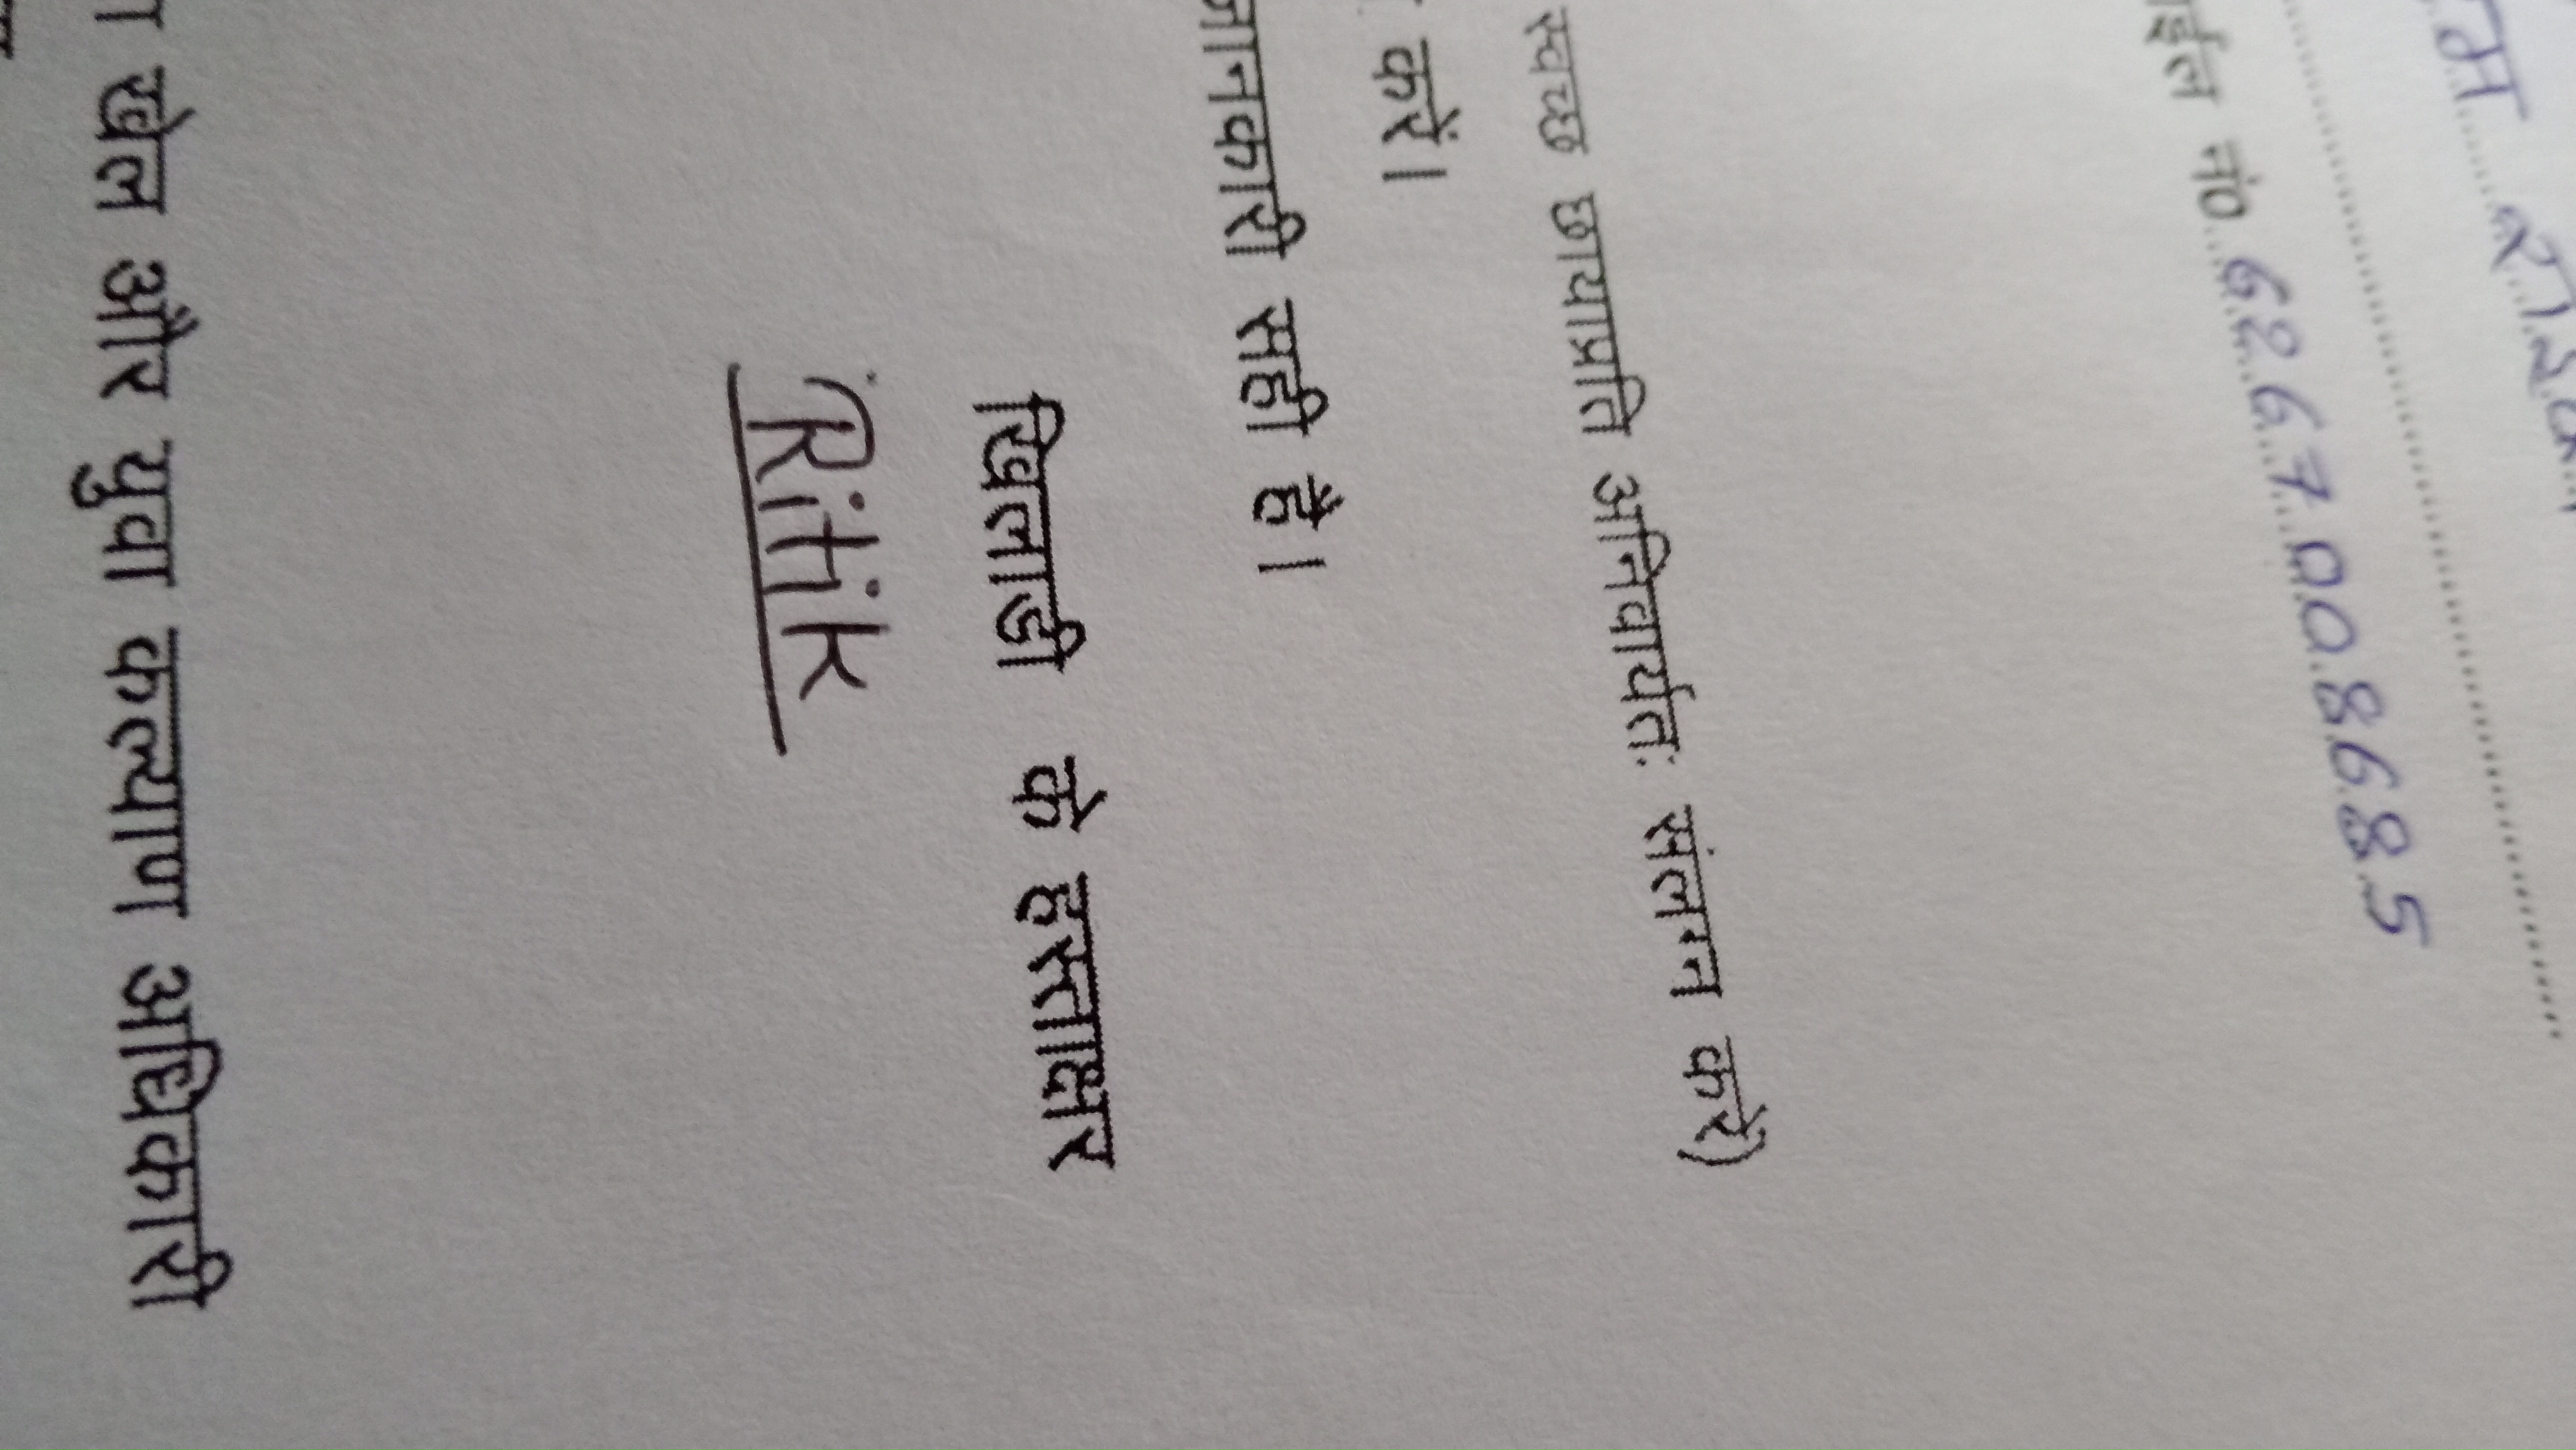 नं० 6267008685
स्वच्छ छायाप्रति अनिवार्यतः संलग्न करें)
करें।
जानकारी सही है।
खिलाड़ी के हस्ताक्षर
Ritik
खेल और युवा कल्याण अधिकारी